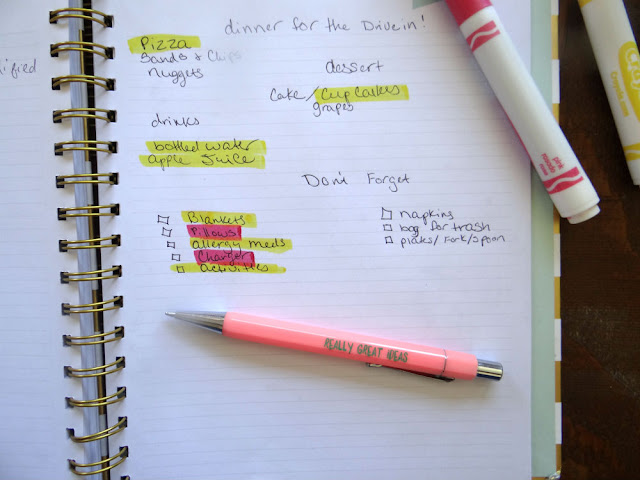 dinner for the Drivein!
Pizza
Sands + Chips
nuggets
dessert
Cake/cupcakes
grapes
drinks
bottled water
apple juice
Don't Forget
Blankets
Pillows
allergy meds
Charger
activities
napkins
bag for trash
plates/fork/spoon
REALLY GREAT IDEAS
pink
Crayola
ified